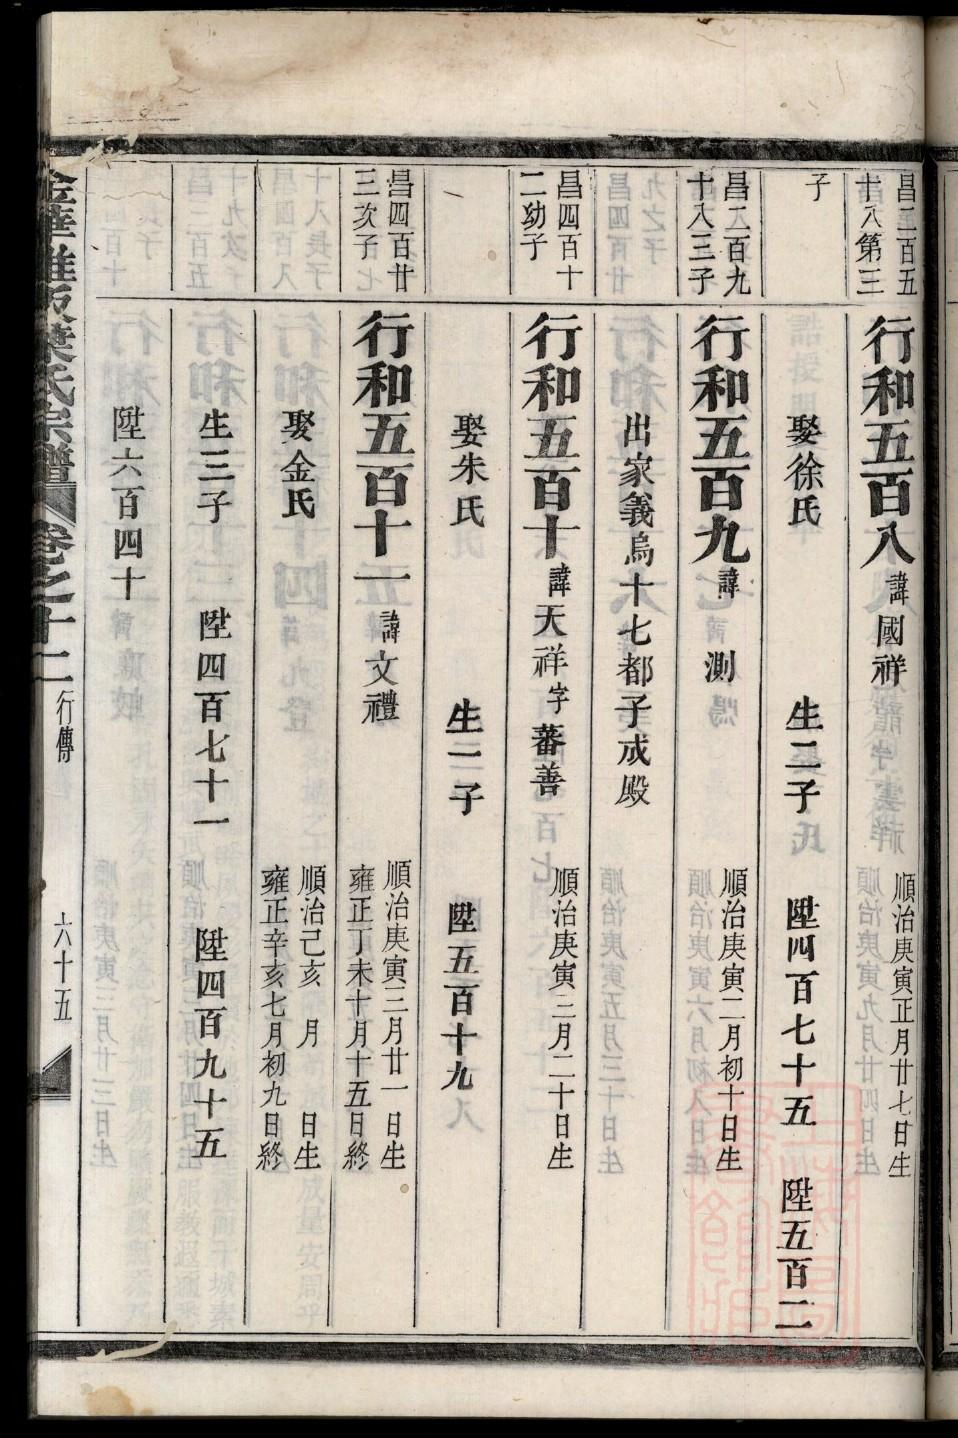 昌二百五
十八第三
子
行和五百八 諱國祥 順治庚寅正月廿七日生
娶徐氏 生二子 陞四百七十五 陞五百二
昌二百九
十八三子
行和五百九 諱測 順治庚寅二月初十日生
出家義烏十七都子成殿
昌四百十
二幼子
行和五百十 諱天祥字蕃善 順治庚寅三月二十日生
娶朱氏 生一子 陞五百十九
昌四百廿
三次子
行和五百十一 諱文禮 順治庚寅三月廿一日生
雍正丁未十月十五日終
娶金氏 順治己亥 月 日生
雍正辛亥七月初九日終
生三子 陞四百七十一 陞四百九十五
陞六百四十
葉氏宗譜 卷之十二 行傳 六十五